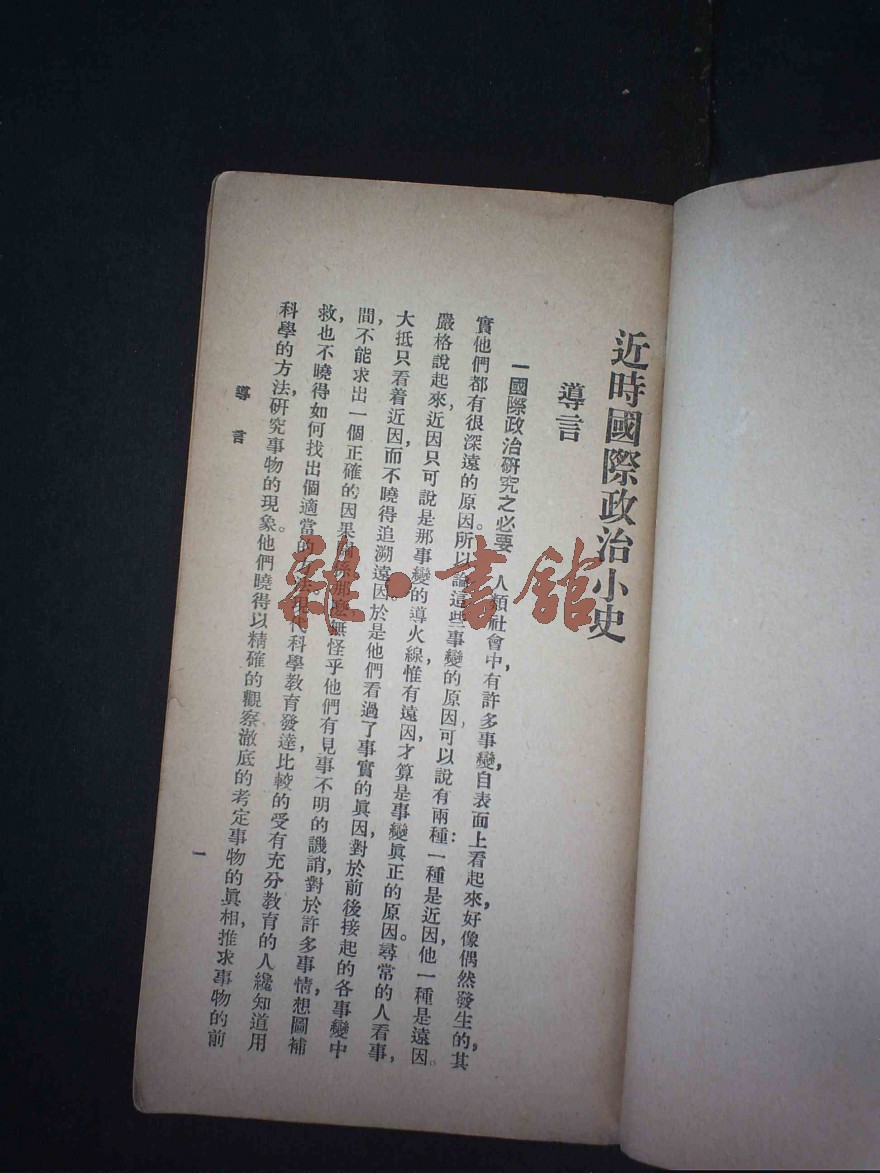 近時國際政治小史
導言
一國際政治研究之必要 人類社會中,有許多事變,自表面上看起來,好像偶然發生的,其
實他們都有很深遠的原因。所以論這些事變的原因,可以說有兩種:一種是近因,他一種是遠因。
嚴格說起來,近因只可說是那事變的導火線,惟有遠因,才算是事變眞正的原因。尋常的人看事,
大抵只看着近因,而不曉得追溯遠因。於是他們看過了事實的眞因,對於前後接起的各事變中
間,不能求出一個正確的因果關係。那麽,無怪乎他們有見事不明的譏誚,對於許多事情,想圖補
救,也不曉得如何找出個適當的方法。現代科學教育發達,比較的受有充分教育的人,纔知道用
科學的方法,研究事物的現象。他們曉得以精確的觀察,澈底的考定事物的眞相,推求事物的前
導言
一
雜·書館